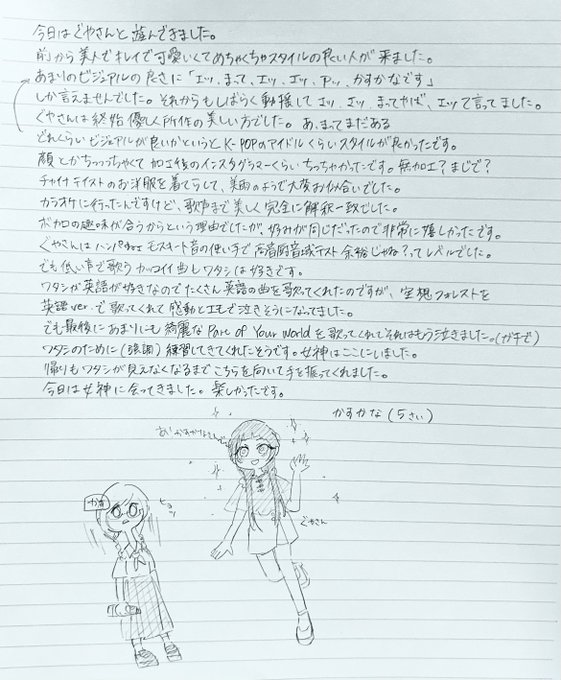 今日はぐやさんと遊んできました。
前から美人でキレイで可愛いくてめちゃくちゃスタイルの良い人が来ました。
あまりのビジュアルの良さに「エッ、まって、エッ、エッ、アッ、かすかなです」
しか言えませんでした。それからもしばらく動揺してエッ、エッ、まってやば、エッて言ってました。
ぐやさんは終始優しく所作の美しい方でした。あ、まってまだある
どれくらいビジュアルが良いかというとK-POPのアイドルくらいスタイルが良かったです。
顔とかちっっっちゃくて加工後のインスタグラマーくらいちっちゃかったです。無加工?まじで?
チャイナテイストのお洋服を着てらして、美雨のようで大変お似合いでした。
カラオケに行ったんですけど、歌声まで美しく完全に解釈一致でした。
ボカロの趣味が合うからという理由でしたが、好みが同じだったので非常に嬉しかったです。
ぐやさんはハンパねェモスキート音の使い手で高音厨音域テスト余裕じゃね?ってレベルでした。
でも低い声で歌うカッコイイ曲もワタシは好きです。
ワタシが英語が好きなのでたくさん英語の曲を歌ってくれたのですが、空想フォレストを
英語ver.で歌ってくれて感動とエモで泣きそうになってました。
でも最後にあまりにも綺麗なPart of Your Worldを歌ってくれてそれはもう泣きました。(ガチで)
ワタシのために(強調)練習してきてくれたそうです。女神はここにいました。
帰りもワタシが見えなくなるまでこちらを向いて手を振ってくれました。
今日は女神に会ってきました。楽しかったです。
かすかな(5さい)
あ!かすかなさーん
ぐやさん
か
ヒョッ